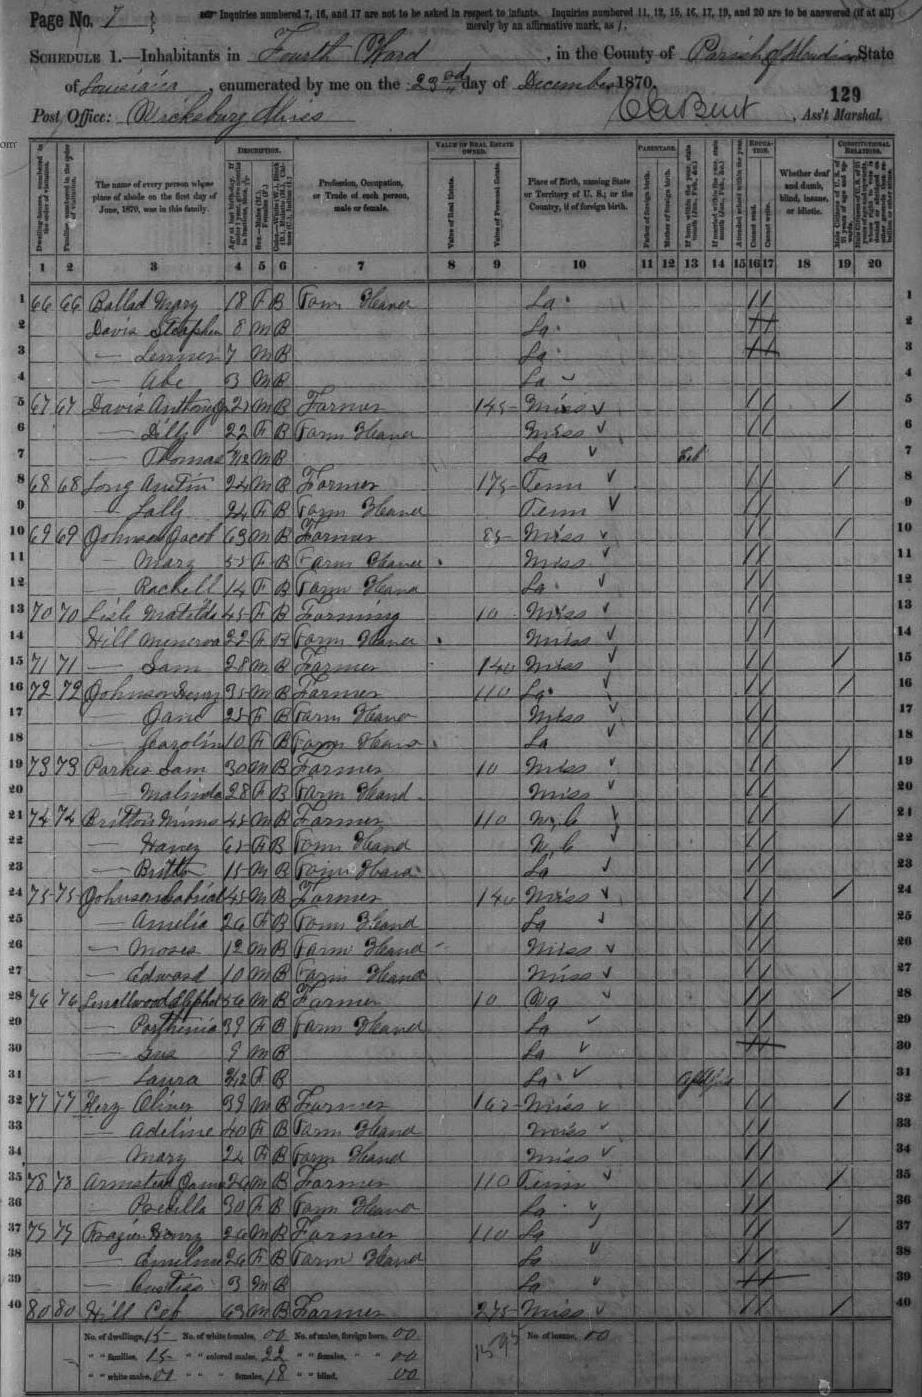 Page No. 7
Inquiries numbered 7, 16, and 17 are not to be asked in respect to infants. Inquiries numbered 11, 12, 15, 16, 17, 19, and 20 are to be answered (if at all)
merely by an affirmative mark, as /.
SCHEDULE 1.—Inhabitants in Fourth Ward, in the County of Parish of Madison State
of Louisiana, enumerated by me on the 23rd day of December 1870.
129
Post Office: Vicksburg Miss
Ass't Marshal.
DESCRIPTION. VALUE OF REAL ESTATE OWNED. PARENTAGE. EDUCATION. CONSTITUTIONAL RELATIONS.
The name of every person whose place of abode on the first day of June, 1870, was in this family.
Profession, Occupation, or Trade of each person, male or female.
Value of Real Estate. Value of Personal Estate.
Place of Birth, naming State or Territory of U. S.; or the Country, if of foreign birth.
Father of foreign birth. Mother of foreign birth.
Attended school within the year. Cannot read. Cannot write.
Whether deaf and dumb, blind, insane, or idiotic.
1 2 3 4 5 6 7 8 9 10 11 12 13 14 15 16 17 18 19 20
1 66 66 Ballad Mary 18 F B Farm Hand La. / / 1
2 Davis Stephen 8 M B La. 2
3 — 7 M B La. 3
4 — Abe 3 M B La 4
5 67 67 Davis Anthony 21 M B Farmer 145 Miss / / / 5
6 — Dilly 22 F B Farm Hand Miss / / 6
7 — Thomas M B La Feb 7
8 68 68 Long Austin 24 M B Farmer 175 Tenn / / / 8
9 — Sally 24 F B Farm Hand Tenn / / 9
10 69 69 Johnson Jacob 63 M B Farmer 85 Miss / / / 10
11 — Mary 55 F B Farm Hand Miss / / 11
12 — Rachell 14 F B Farm Hand La. / / 12
13 70 70 Lisle Matilda 45 F B Farming 10 Miss / / 13
14 Hill Menerva 22 F B Farm Hand Miss / / 14
15 71 71 — Sam 28 M B Farmer 140 Miss / / / 15
16 72 72 Johnson Henry 35 M B Farmer 110 La. / / / 16
17 — Jane 25 F B Farm Hand Miss / / 17
18 — Carolin 10 F B Farm Hand La / / 18
19 73 73 Parker Sam 30 M B Farmer 10 Miss / / / 19
20 — Malinda 28 F B Farm Hand Miss / / 20
21 74 74 Britton Mims 45 M B Farmer 110 N. C / / / 21
22 — 65 F B Farm Hand N. C / / 22
23 — Britton 15 M B Farm Hand La / / 23
24 75 75 Johnson Gabriel 45 M B Farmer 140 Miss / / / 24
25 — Amelia 26 F B Farm Hand La / / 25
26 — Moses 12 M B Farm Hand Miss / / 26
27 — Edward 10 M B Farm Hand Miss / / 27
28 76 76 Smallwood Stephen 56 M B Farmer 10 Va / / / 28
29 — Parthenia 39 F B Farm Hand La / / 29
30 — Gus 9 M B La 30
31 — Laura F B La. 31
32 77 77 Oliver 39 M B Farmer Miss / / / 32
33 — Adeline 40 F B Farm Hand Miss / / 33
34 — Mary 24 F B Farm Hand Miss / / 34
35 78 78 Armstead James 26 M B Farmer 110 Tenn / / / 35
36 — 30 F B Farm Hand La. / / 36
37 79 79 Frazier Henry 26 M B Farmer 110 La / / / 37
38 — Emeline 26 F B Farm Hand La / / 38
39 — Curtiss 3 M B La 39
40 80 80 Hill Cef 63 M B Farmer 275 Miss / / / 40
No. of dwellings, 15 No. of white females, 00 No. of males, foreign born, 00 No. of insane, 00
" " families, 15 " " colored males, 22 " " females, " " 00
" " white males, 00 " " " females, 18 " " blind, 00